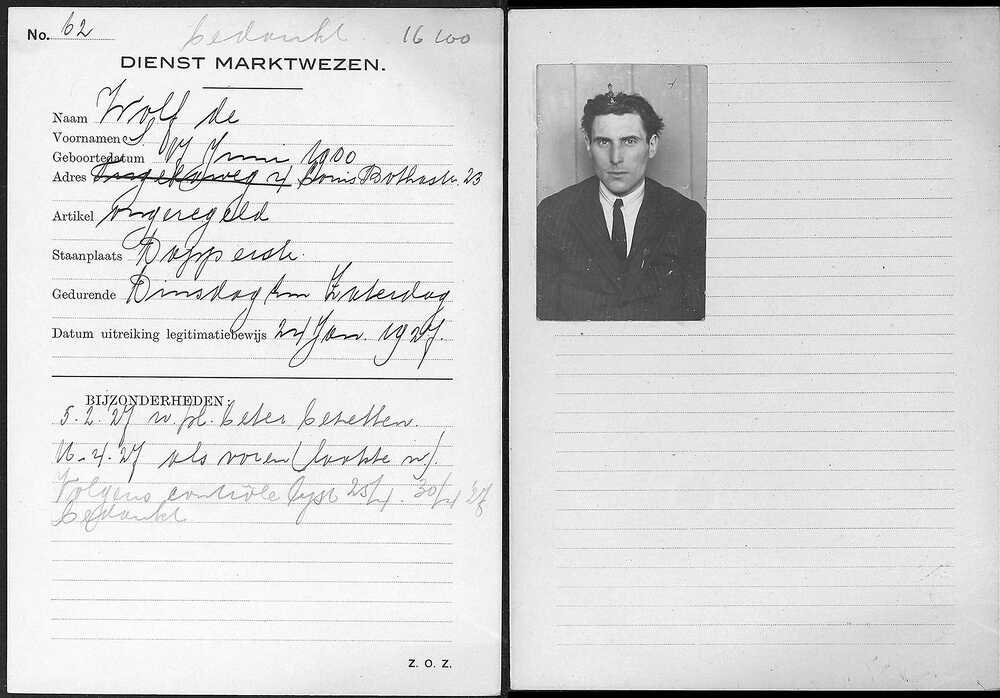 No. 62 bedankt 16100
DIENST MARKTWEZEN.
Naam Wolf de
Voornamen S.
Geboortedatum 17 Juni 1900
Adres Louis Bothastr. 23
Artikel ongeregeld
Staanplaats Dapperstr.
Gedurende Dinsdag t/m Zaterdag
Datum uitreiking legitimatiebewijs 24 Jan. 1927.
BIJZONDERHEDEN:
5.2.27 w. pl. beter bezetten.
16.4.27 als voren (laatste w).
Volgens contrôle lijst 25/4 . 30/4 '27
bedankt
Z. O. Z.